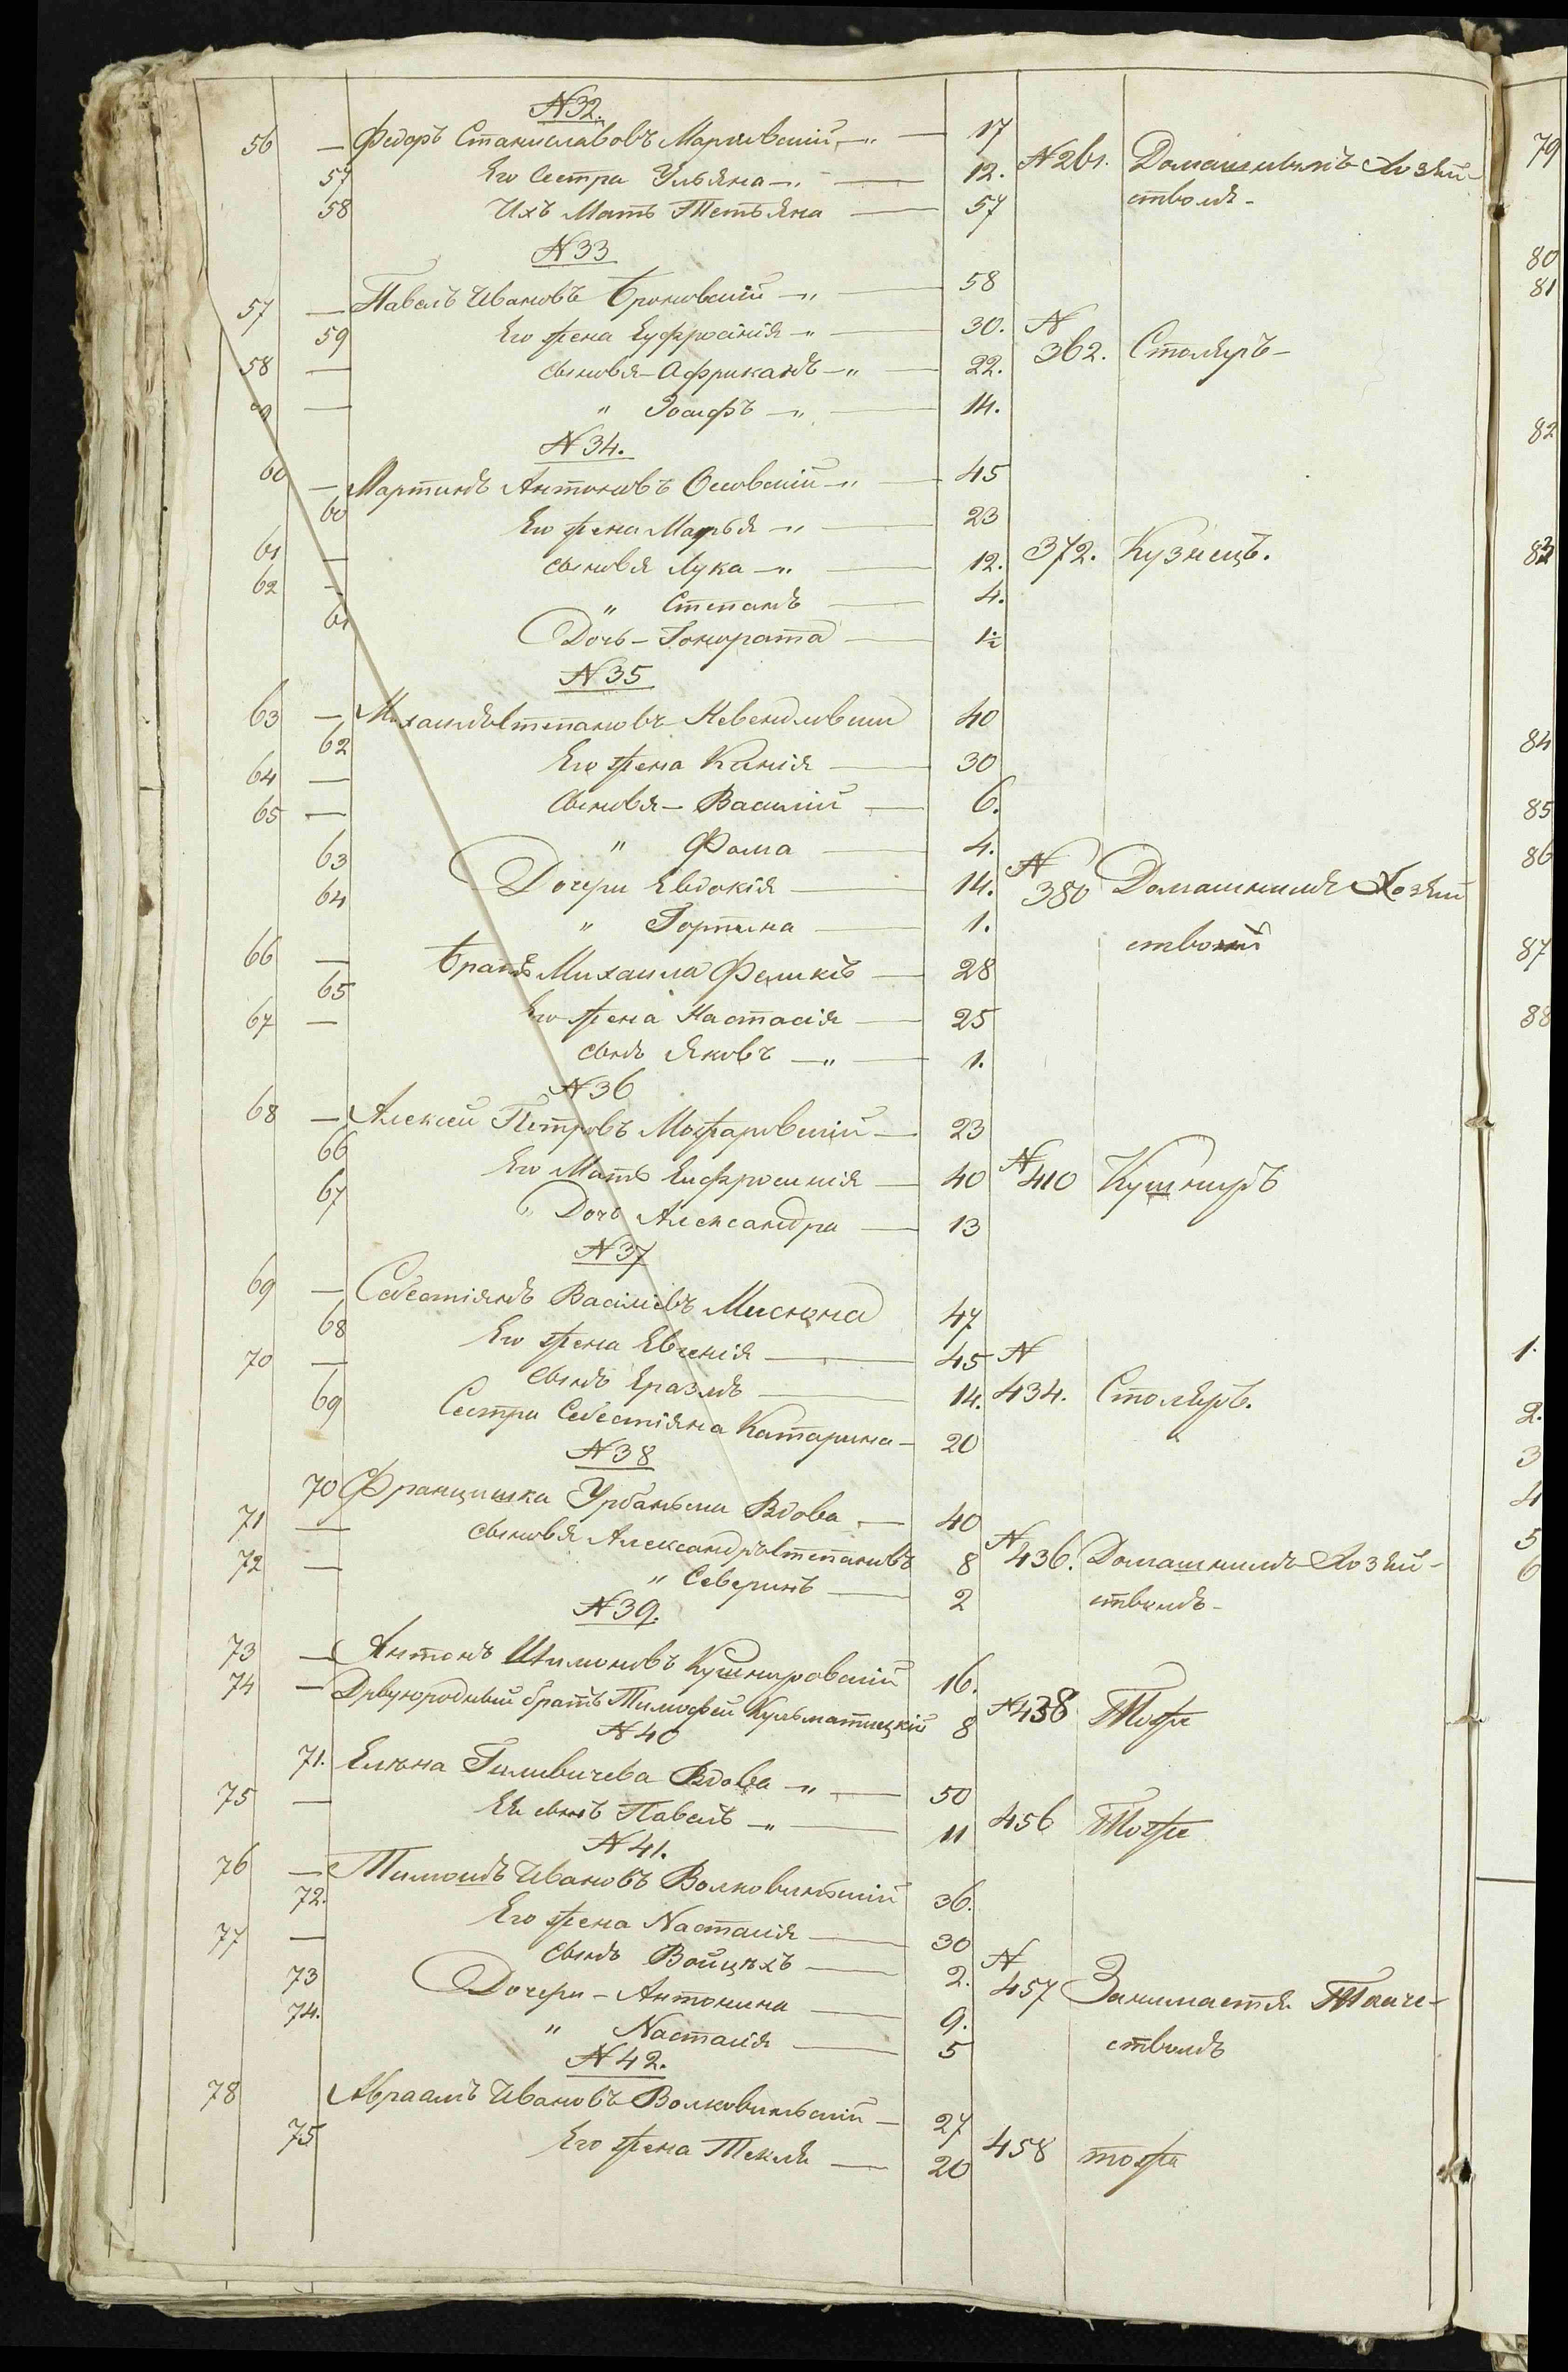 N 32.
56 — Федоръ Станиславовъ —„— 17
57 Его Сестра Ульяна —„— 12. N 261. Домашнимъ Хозяй-
58 Ихъ Мать Тетьяна — 57 ствомъ -
N 33
57 — Павелъ Ивановъ Броновскій —„— 58
59 Его жена Еуфросинія —„— 30. N
58 — Сыновья - Африканъ —„— 22. 362. Столяръ -
59 — „ Іосифъ —„— 14.
N 34.
60 — Мартинъ Антоновъ Осовскій —„— 45
60 Его жена Марья —„— 23
61 — Сыновья Лука —„— 12. 372. Кузнецъ.
62 — „ Степанъ — 4.
61 Дочь - Гонората — 1½
N 35
63 — Михаилъ Степановъ 40
62 Его жена Ксенія — 30
64 — Сыновья - Василій — 6.
65 — „ Фома — 4.
63 Дочери Евдокія — 14. N 380 Домашнимъ Хозяй
64 „ Гортина — 1.
ствомъ
66 — Братъ Михаила Феликсъ — 28
65 Его жена Настасія — 25
67 — Сынъ Яковъ —„— 1.
N 36
68 — Алексей ПетровъМожаровскій — 23
66 Его Мать Ефросинія — 40 N 410 Кушниръ
67 „ Дочь Александра — 13
N 37
69 — Себестіянъ Василіевъ Миснона 47
68 Его жена Евгенія — 45 N
70 — Сынъ Еразмъ — 14. 434. Столяръ.
69 Сестра Себестіяна Катарина - 20
N 38
70 Францишка Урбаньска Вдова — 40
71 — Сыновья Александръ Степановъ 8 N 436. Домашнимъ Хозяй-
72 — „ Северинъ — 2 ствомъ -
N 39.
73 — Антонъ Шимоновъ Кушнировскій 16.
74 — Двуюродный братъ Тимофей Кульматицкій 8 N 438 Тоже
N 40
71. Елена Гилевичева Вдова —„— 50
75 — Ея сынъ Павелъ —„— 11 456 Тоже
N 41.
76 — Тимошъ Ивановъ Волковинскій 36.
72. Его жена Настасія — 30
77 — Сынъ Войцѣхъ — 2. N
73 Дочери - Антонина — 9. 457 Занимается Ткаче-
74. „ Настасія — 5 ствомъ
N 42.
78 Авраамъ Ивановъ Волковинскій — 27
75 Его жена Текля — 20 458 тоже
79
80
81
82
83
84
85
86
87
88
1.
2.
3
4
5
6